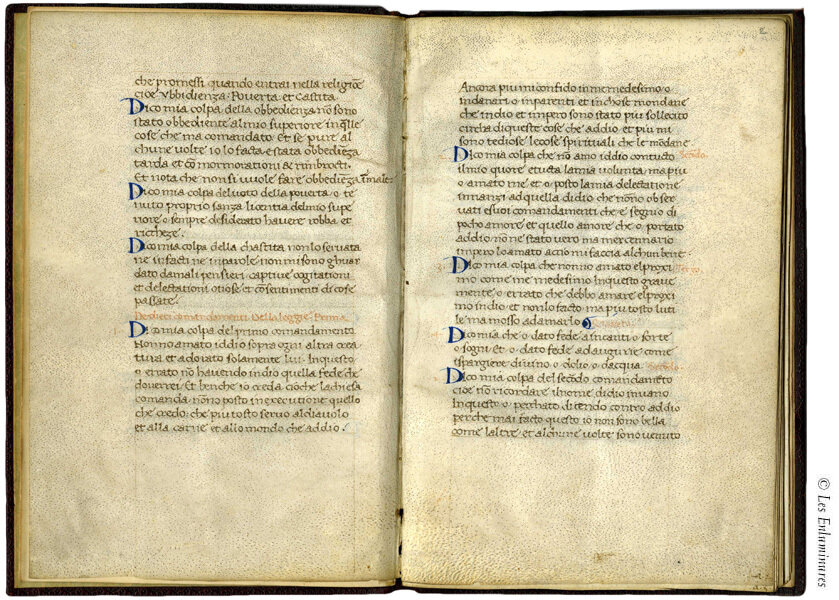 che promessi quando entrai nella religiōe
cioe Vbbidienza. Poverta et Castita.
Dico mia colpa della obbedienza nō sono
stato obbediente al mio superiore in q̄lle
cose che ma comandato. Et se pure al
chune volte io lo facta e stata obbediēza
tarda et cō mormorationi & rimbrocti.
Et nota che non si vuole fare obbediēza ī male.
Dico mia colpa del voto della poverta o te
nuto proprio sanza licentia del mio supe
riore o sempre desiderato havere robba et
richeze.
Dico mia colpa della chastita non lo servata
ne ī facti ne in parole non mi sono ghuar
dato da mali pensieri, captive cogitationi
et delectationi otiose et cōsentimenti di cose
passate.
De dieci comandamenti della leggie. Prima
Dico mia colpa del primo comandamento
Non no amato iddio sopra ogni altra crea
tura et adorato solamente lui. In questo
o errato nō havendo in quella fede che
doverrei. Et benche io creda cio che la chiesa
comanda. non no posto in executione quello
che credo: che piu tosto servo al diavolo
et alla carne et allo mondo che addio.
2
Ancora piu mi confido in me medesimo o
in danari o in parenti et in chose mondane
che in dio et impero sono stato piu sollecito
circha di queste cose che addio. et piu mi
sono tediose le cose spirituali che le mōdane
Dico mia colpa che nō amo iddio con tucto
il mio quore et tucta la mia volunta, ma piu
o amato me et o posto la mia delectatione
innanzi ad quella di dio che non no obser
vati e suoi comandamenti che e segnio di
pocho amore et quello amore che o portato
addio nō ne stato vero ma mercennario
impero lo amato accio mi faccia alchun bene.
Dico mia colpa che non no amato el proxi
mo come me medesimo in questo grave
mente o errato che debbo amare el proxi
mo in dio et non lo facto ma piu tosto luti
le ma mosso ad amarlo
Dico mia che o dato fede a incanti o forte
o sogni et o dato fede ad augurie come
ispargiere di vino o dolio o dacqua.
Dico mia colpa del secōdo comandamēto
cioe nō ricordare il nome di dio invano
In questo o pecchato dicendo contro addio
perche mai facto questo io non sono bella
come laltre et alchune volte sono venuto
© Les Enluminures